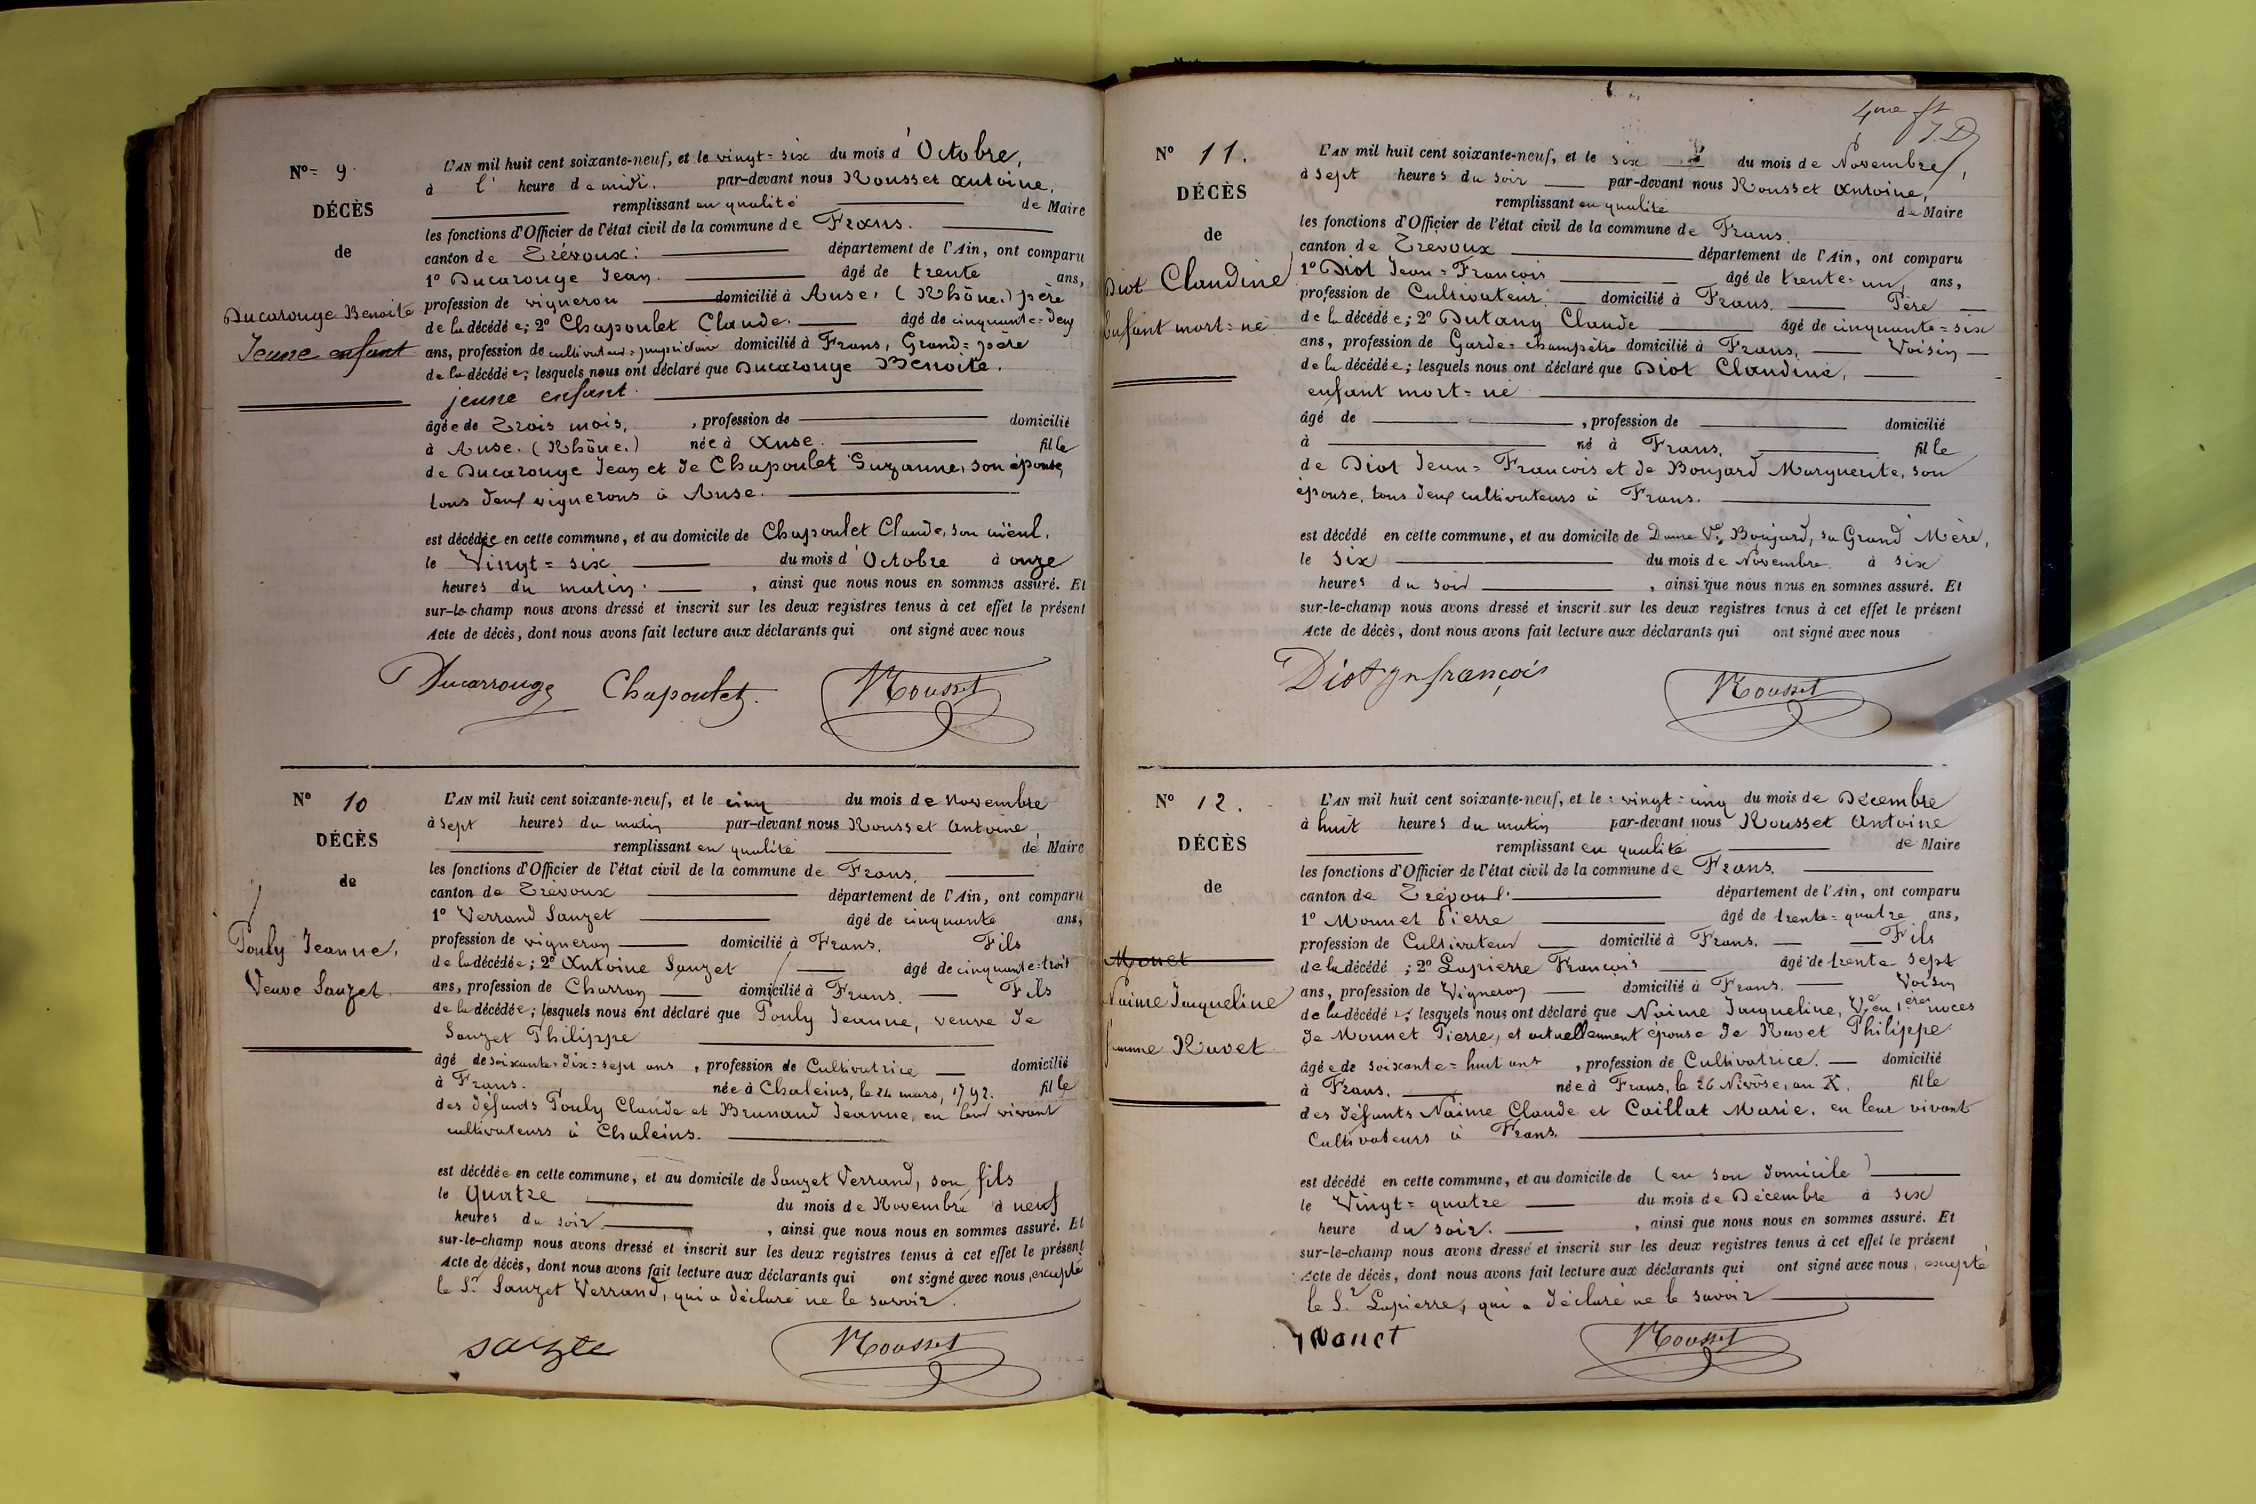 N° = 9.
DÉCÈS
de
Ducarouge Benoite
Jeune enfant
L'AN mil huit cent soixante-neuf, et le vingt = six du mois d'Octobre,
à l' heure de midi. par-devant nous Rousset Antoine,
remplissant en qualité de Maire
les fonctions d'Officier de l'état civil de la commune de Frans.
canton de Trévoux: département de l'Ain, ont comparu
1° Ducarouge Jean. âgé de trente ans,
profession de vigneron domicilié à Anse, (Rhône.) père
de la décédée; 2° Chapoulet Claude. âgé de cinquante = deux
ans, profession de cultivateur = propriétaire domicilié à Frans, Grand = père
de la décédée; lesquels nous ont déclaré que Ducarouge Benoite.
jeune enfant.
âgée de Trois mois, , profession de domicilié
à Anse. (Rhône.) née à Anse. fille
de Ducarouge Jean et de Chapoulet Suzanne, son épouse,
tous deux vignerons à Anse.
est décédée en cette commune, et au domicile de Chapoulet Claude, son aïeul.
le Vingt = six du mois d'Octobre à onze
heures du matin. , ainsi que nous nous en sommes assuré. Et
sur-le-champ nous avons dressé et inscrit sur les deux registres tenus à cet effet le présent
Acte de décès, dont nous avons fait lecture aux déclarants qui ont signé avec nous
Ducarrouge Chapoulet. Rousset
N° 10
DÉCÈS
de
Pouly Jeanne,
Veuve Sauzet
L'AN mil huit cent soixante-neuf, et le cinq du mois de Novembre
à sept heures du matin par-devant nous Rousset Antoine,
remplissant en qualité de Maire
les fonctions d'Officier de l'état civil de la commune de Frans.
canton de Trévoux département de l'Ain, ont comparu
1° Verrand Sauzet âgé de cinquante ans,
profession de vigneron domicilié à Frans. Fils
de la décédée; 2° Antoine Sauzet âgé de cinquante = trois
ans, profession de Charron domicilié à Frans. Fils
de la décédée; lesquels nous ont déclaré que Pouly Jeanne, veuve de
Sauzet Philippe
âgé de soixante = dix = sept ans , profession de Cultivatrice domicilié
à Frans. née à Chaleins, le 24 mars, 1792. fille
des défunts Pouly Claude et Brunand Jeanne, en leur vivant
cultivateurs à Chaleins.
est décédée en cette commune, et au domicile de Sauzet Verrand, son fils
le Quatre du mois de Novembre à neuf
heures du soir. , ainsi que nous nous en sommes assuré. Et
sur-le-champ nous avons dressé et inscrit sur les deux registres tenus à cet effet le présent
Acte de décès, dont nous avons fait lecture aux déclarants qui ont signé avec nous, excepté
le Sr Sauzet Verrand, qui a déclaré ne le savoir.
Rousset
4me ft
N° 11.
DÉCÈS
de
Diot Claudine
Enfant mort = né
L'AN mil huit cent soixante-neuf, et le six du mois de Novembre,
à sept heures du soir par-devant nous Rousset Antoine,
remplissant en qualité de Maire
les fonctions d'Officier de l'état civil de la commune de Frans.
canton de Trévoux département de l'Ain, ont comparu
1° Diot Jean = François âgé de trente = un, ans,
profession de Cultivateur. domicilié à Frans. Père
de la décédée; 2° Dutang Claude âgé de cinquante = six
ans, profession de Garde = champêtre domicilié à Frans. Voisin
de la décédée; lesquels nous ont déclaré que Diot Claudine,
enfant mort = né
âgé de , profession de domicilié
à né à Frans. fille
de Diot Jean = François et de Boujard Marguerite, son
épouse, tous deux cultivateurs à Frans.
est décédé en cette commune, et au domicile de Dame Ve Boujard, sa Grand' Mère,
le six du mois de Novembre. à six
heures du soir , ainsi que nous nous en sommes assuré. Et
sur-le-champ nous avons dressé et inscrit sur les deux registres tenus à cet effet le présent
Acte de décès, dont nous avons fait lecture aux déclarants qui ont signé avec nous
Diot jn françois Rousset
N° 12.
DÉCÈS
de
Monet
Naime Jaqueline
femme Ravet
L'AN mil huit cent soixante-neuf, et le = vingt = cinq du mois de Décembre
à huit heures du matin par-devant nous Rousset Antoine
remplissant en qualité de Maire
les fonctions d'Officier de l'état civil de la commune de Frans.
canton de Trévoux. département de l'Ain, ont comparu
1° Monnet Pierre âgé de trente = quatre ans,
profession de Cultivateur domicilié à Frans. Fils
de la décédé ; 2° Lapierre François âgé de trente sept
ans, profession de Vigneron domicilié à Frans. Voisin
de la décédé ; lesquels nous ont déclaré que Naime Jacqueline, Ve en 1ères noces
de Monnet Pierre, et actuellement épouse de Ravet Philippe
âgée de soixante = huit ans , profession de Cultivatrice. domicilié
à Frans. née à Frans, le 26 Nivôse, an X. fille
des défunts Naime Claude et Caillat Marie. en leur vivant
Cultivateurs à Frans.
est décédé en cette commune, et au domicile de (en son domicile)
le Vingt = quatre du mois de Décembre à six
heure du soir. , ainsi que nous nous en sommes assuré. Et
sur-le-champ nous avons dressé et inscrit sur les deux registres tenus à cet effet le présent
Acte de décès, dont nous avons fait lecture aux déclarants qui ont signé avec nous, excepté
le Sr Lapierre, qui a déclaré ne le savoir
Monet Rousset